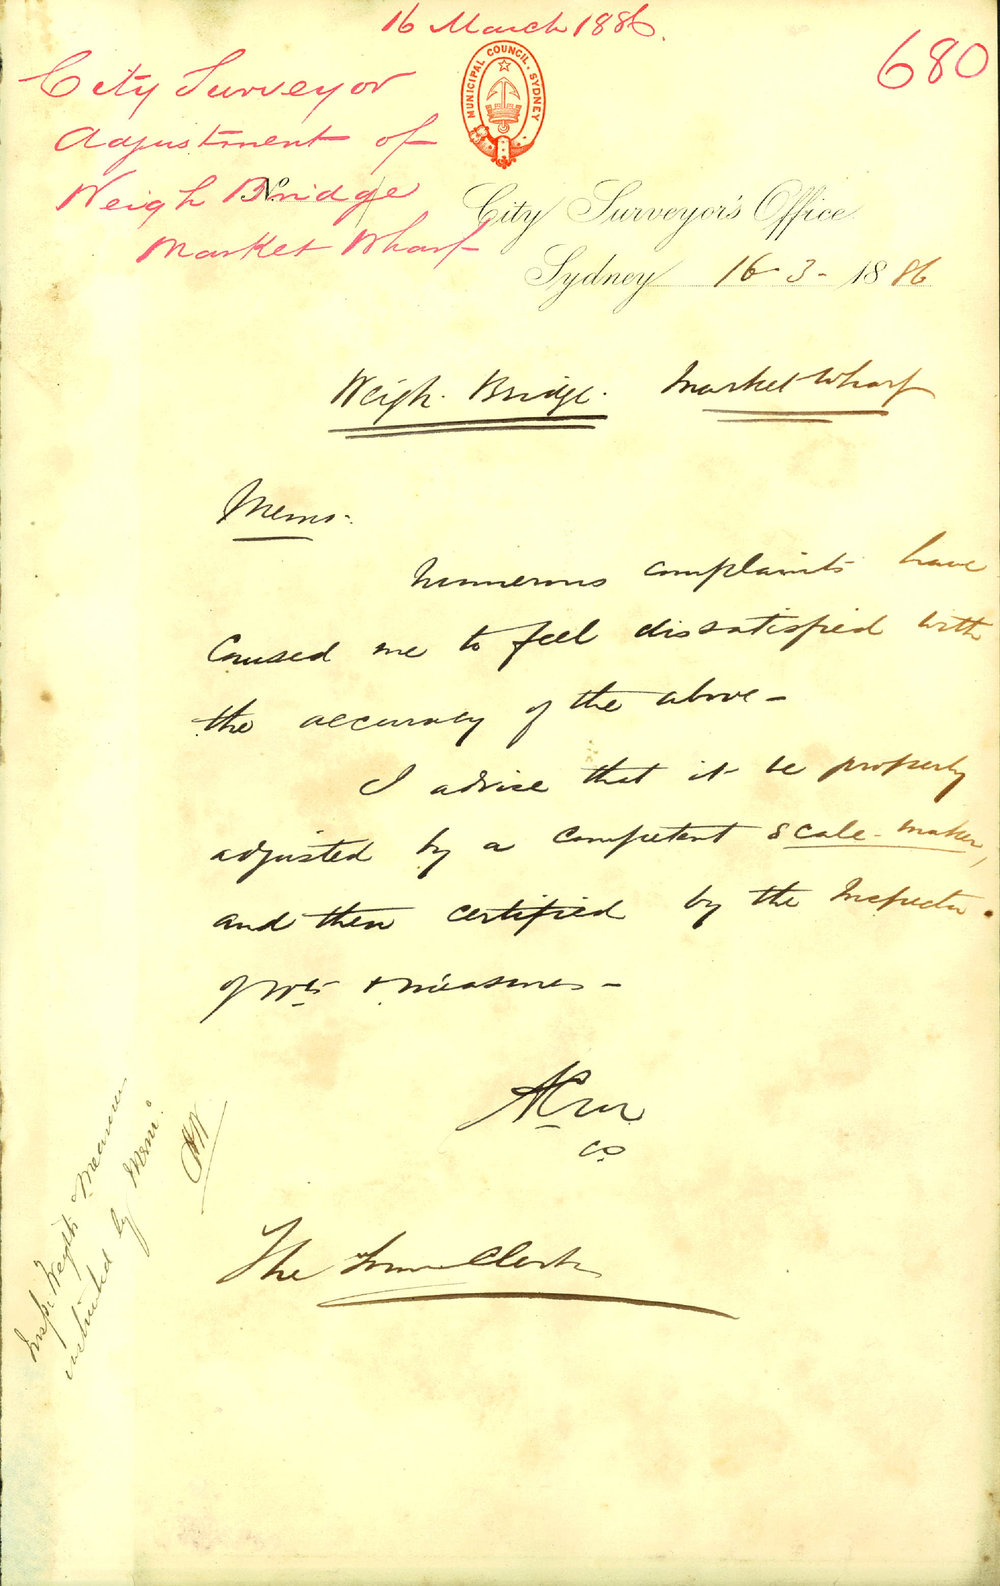 16 March 1886.
680
City Surveyor
Adjustment of
Weigh Bridge
Market Wharf
MUNICIPAL COUNCIL, SYDNEY
No.
City Surveyor's Office
Sydney 16-3-1886
Weigh. Bridge. Market Wharf
Memo.
Numerous complaints have
Caused me to feel dissatisfied with
the accuracy of the above-
I advise that it be properly
adjusted by a competent scale-maker,
and then certified by the Inspector.
of wts & measures-
CS
The Town Clerk
Insp. Weights & Measures
instructed by Mem: